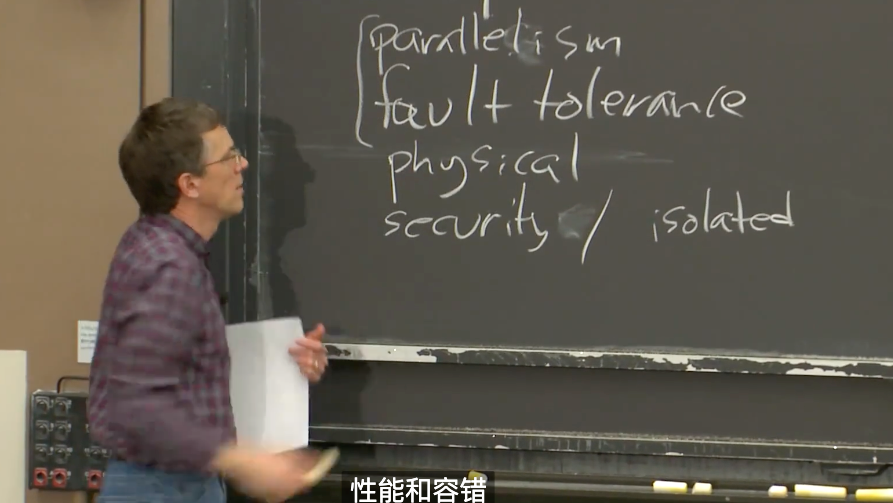 parallelism
fault tolerance
physical
security / isolated
性能和容错